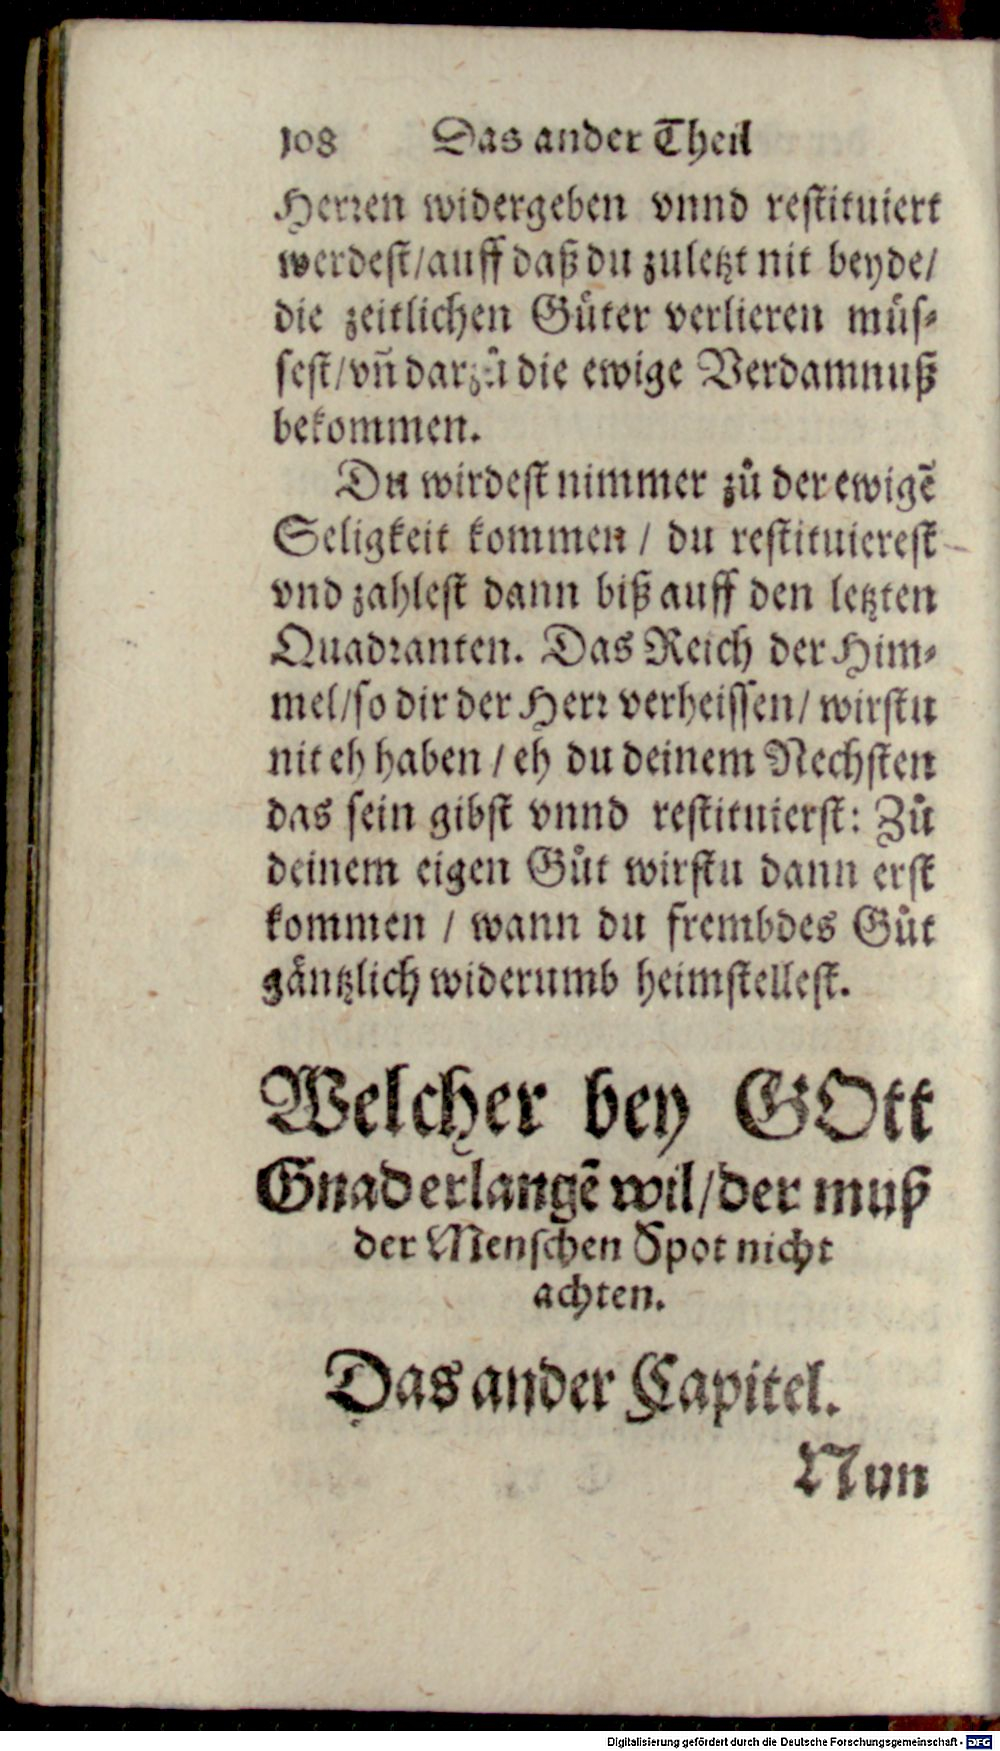 108 Das ander Theil
Herren widergeben vnnd restituiert
werdest/auff daß du zuletzt nit beyde/
die zeitlichen Güter verlieren müs⸗
sest/vn̄ darzů die ewige Verdamnuß
bekommen.
Du wirdest nimmer zů der ewigē
Seligkeit kommen / du restituierest
vnd zahlest dann biß auff den letzten
Quadranten. Das Reich der Him⸗
mel/so dir der Herr verheissen/ wirstu
nit eh haben / eh du deinem Nechsten
das sein gibst vnnd restituierst: Zů
deinem eigen Gůt wirstu dann erst
kommen / wann du frembdes Gůt
gäntzlich widerumb heimstellest.
Welcher bey GOtt
Gnad erlangē wil/der muß
der Menschen Spot nicht
achten.
Das ander Capitel.
Nun
Digitalisierung gefördert durch die Deutsche Forschungsgemeinschaft - DFG